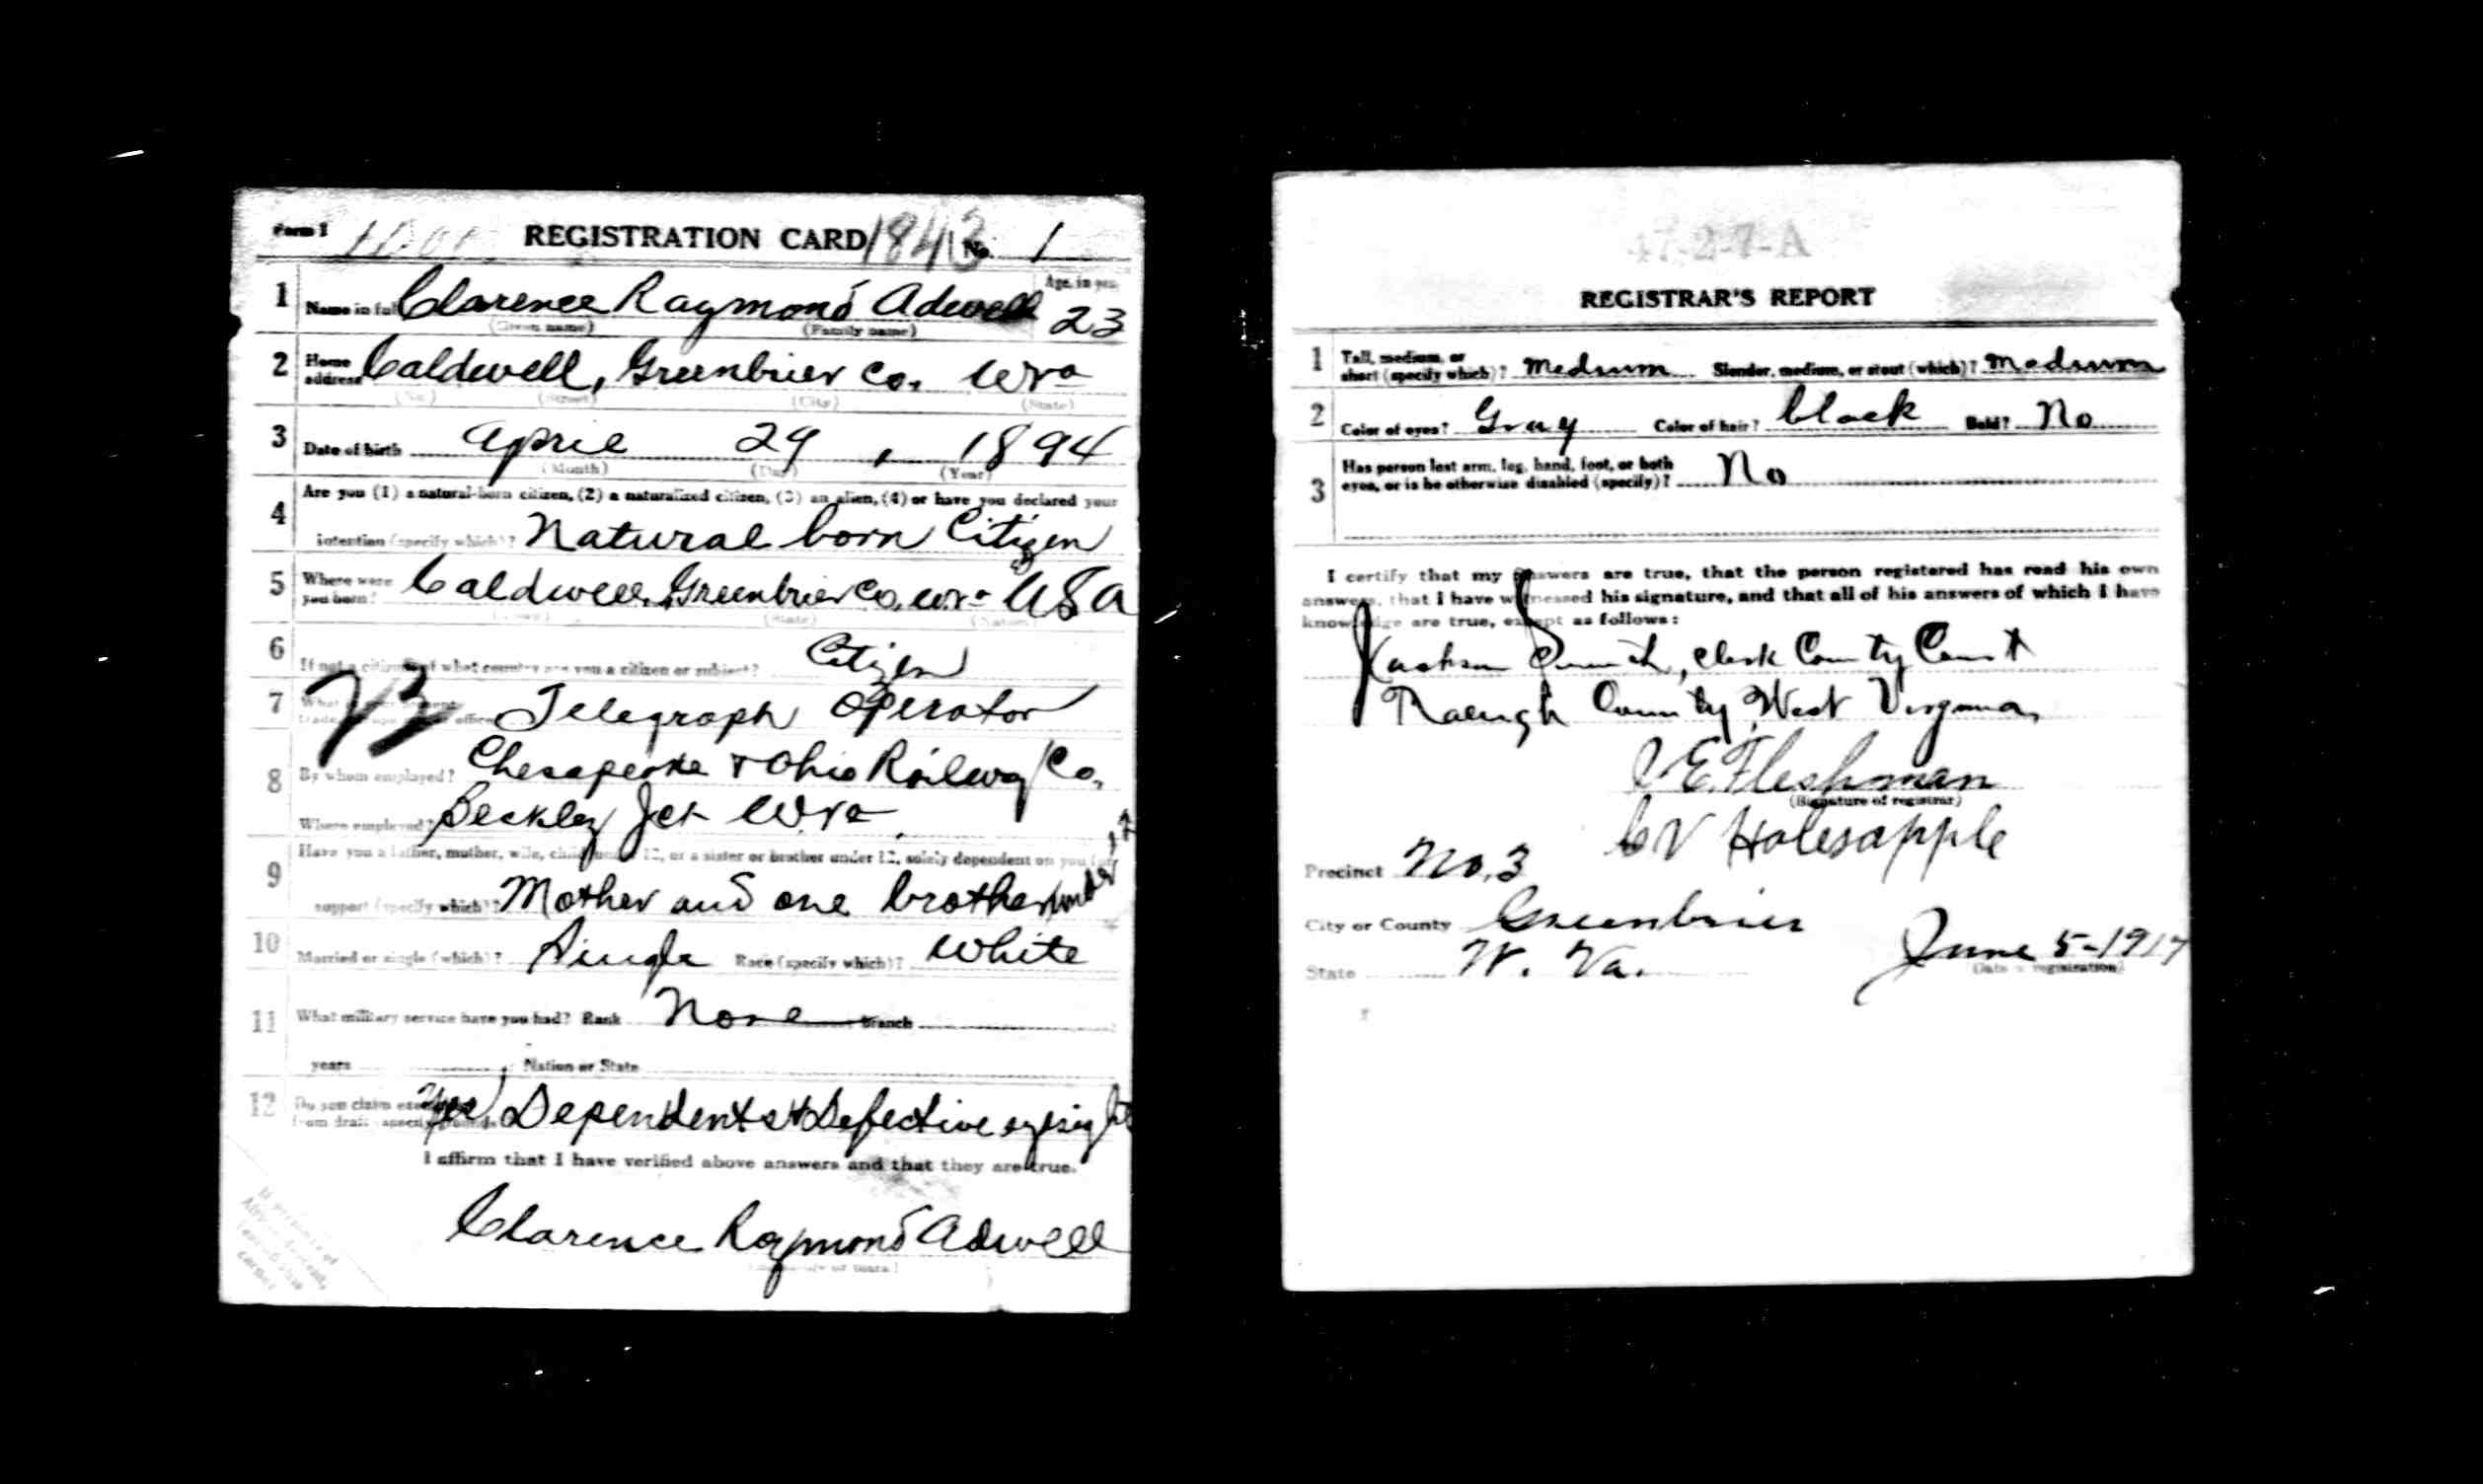 Form 1 REGISTRATION CARD 1843 No. 1
1 Name in full Clarence Raymond Adwell Age, in yrs. 23
(Given name) (Family name)
2 Home address Caldwell, Greenbrier Co. Wva
(No.) (Street) (City) (State)
3 Date of birth April 29, 1894
(Month) (Day) (Year)
4 Are you (1) a natural-born citizen, (2) a naturalized citizen, (3) an alien, (4) or have you declared your
intention (specify which)? Natural born Citizen
5 Where were you born? Caldwell, Greenbrier Co. Wva USA
(Town) (State) (Nation)
6 If not a citizen of what country are you a citizen or subject? Citizen
7 What trade office Telegraph Operator
8 By whom employed? Chesapeake & Ohio Railway Co.
Where employed? Beckley Jct Wva.
9 Have you a father, mother, wife, child under 12, or a sister or brother under 12, solely dependent on you for
support (specify which)? Mother and one brother under 12
10 Married or single (which)? Single Race (specify which)? White
11 What military service have you had? Rank None Branch
years ; Nation or State
12 Do you claim exemption from draft (specify grounds)? Yes, Dependents & Defective eyesight
I affirm that I have verified above answers and that they are true.
Clarence Raymond Adwell
47-2-7-A
REGISTRAR'S REPORT
1 Tall, medium, or short (specify which)? Medium Slender, medium, or stout (which)? Medium
2 Color of eyes? Gray Color of hair? black Bald? No
3 Has person lost arm, leg, hand, foot, or both eyes, or is he otherwise disabled (specify)? No
I certify that my answers are true, that the person registered has read his own
answers, that I have witnessed his signature, and that all of his answers of which I have
knowledge are true, except as follows:
Jackson Smith, Clerk County Court
Raleigh County, West Virginia,
E. Fleshman
(Signature of registrar)
C V Holesapple
Precinct No. 3
City or County Greenbrier
State W. Va. June 5-1917
(Date of registration)